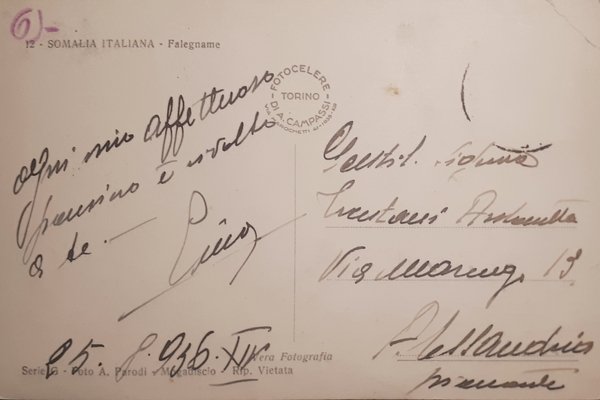 6)-
12 - SOMALIA ITALIANA - Falegname
FOTOCELERE
TORINO
DI A. CAMPASSI
ogni mio affettuoso
pensiero è rivolto
a te. —
25. 936. XIV
Gentil. Signora
Antonietta
Via Marengo 13
Alessandria
Piemonte
Vera Fotografia
Serie G - Foto A. Parodi - Mogadiscio - Rip. Vietata